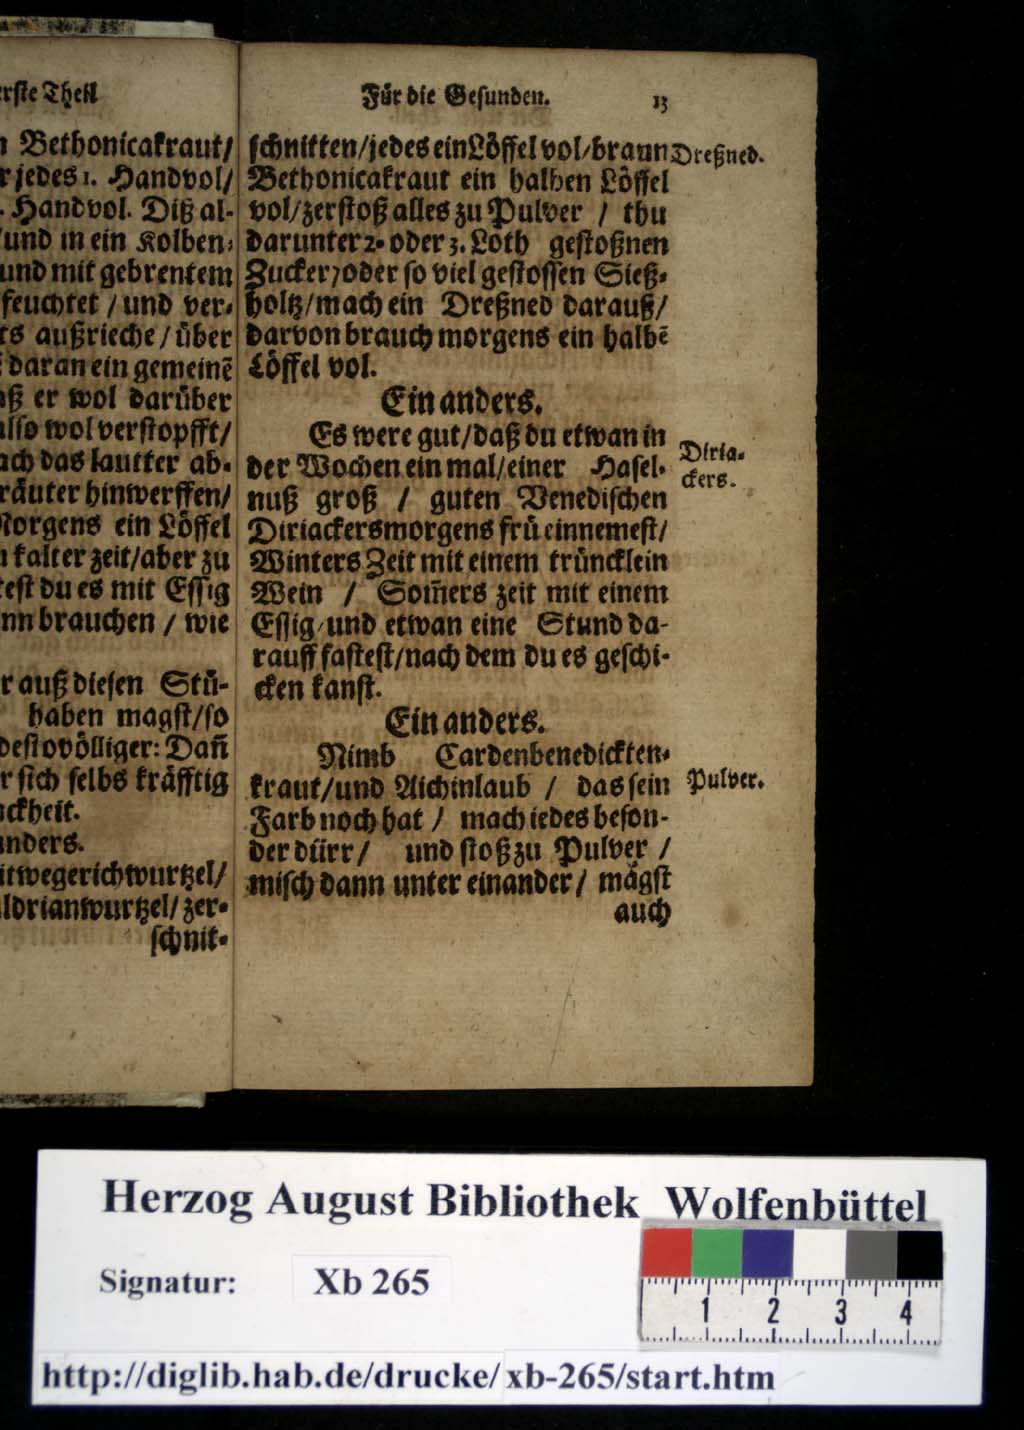 erste Theil
Bethonicakraut/
jedes 1. Handvol/
Handvol. Diß al-
und in ein Kolben-
und mit gebrentem
feuchtet / und ver-
außrieche / über
daran ein gemeinē
er wol darüber
also wol verstopfft/
das lautter ab-
kräuter hinwerffen/
Morgens ein Löffel
kalter zeit/aber zu
du es mit Essig
brauchen / wie
auß diesen Stü-
haben magst/so
desto völliger: Dañ
sich selbs kräfftig
anders.
Baldrianwurtzel/ zer-
schnit-
Für die Gesunden. 13
schnitten/jedes ein Löffel vol/braun
Bethonicakraut ein halben Löffel
vol/zerstoß alles zu Pulver / thu
darunter 2. oder 3. Loth gestoßnen
Zucker/oder so viel gestossen Sieß-
holtz/mach ein Dreßned darauß/
darvon brauch morgens ein halbē
Löffel vol.
Dreßned.
Ein anders.
Es were gut/daß du etwan in
der Wochen ein mal/einer Hasel-
nuß groß / guten Venedischen
Diriackers morgens frü einnemest/
Winters Zeit mit einem trüncklein
Wein / Som̄ers zeit mit einem
Essig/und etwan eine Stund da-
rauff fastest/nach dem du es geschi-
cken kanst.
Diria-
ckers.
Ein anders.
Nimb Cardenbenedickten-
kraut/und Aichinlaub / das sein
Farb noch hat / mach iedes beson-
der dürr/ und stoß zu Pulver /
misch dann unter einander/ mägst
auch
Pulver.
Herzog August Bibliothek Wolfenbüttel
Signatur: Xb 265
1 2 3 4
http://diglib.hab.de/drucke/xb-265/start.htm